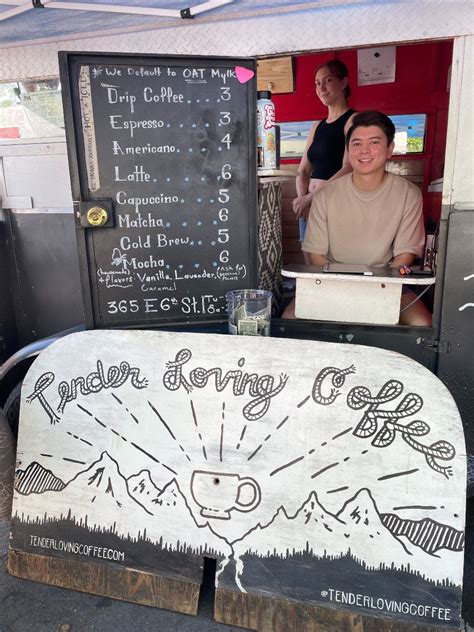 We Default to OAT Mylk
ALL DRINKS AVAILABLE HOT or ICED
Drip Coffee . . . 3
Espresso . . . 3
Americano . . . 4
Latte . . . 6
Capuccino . . . 5
Matcha . . . 6
Cold Brew . . . 5
Mocha . . . 6
(homemade flavors) Vanilla, Lavender, Caramel (Ask for Seasonal Flavors)
365 E 6th St.
Tender Loving Coffee
TENDERLOVINGCOFFEE.COM
@TENDERLOVINGCOFFEE